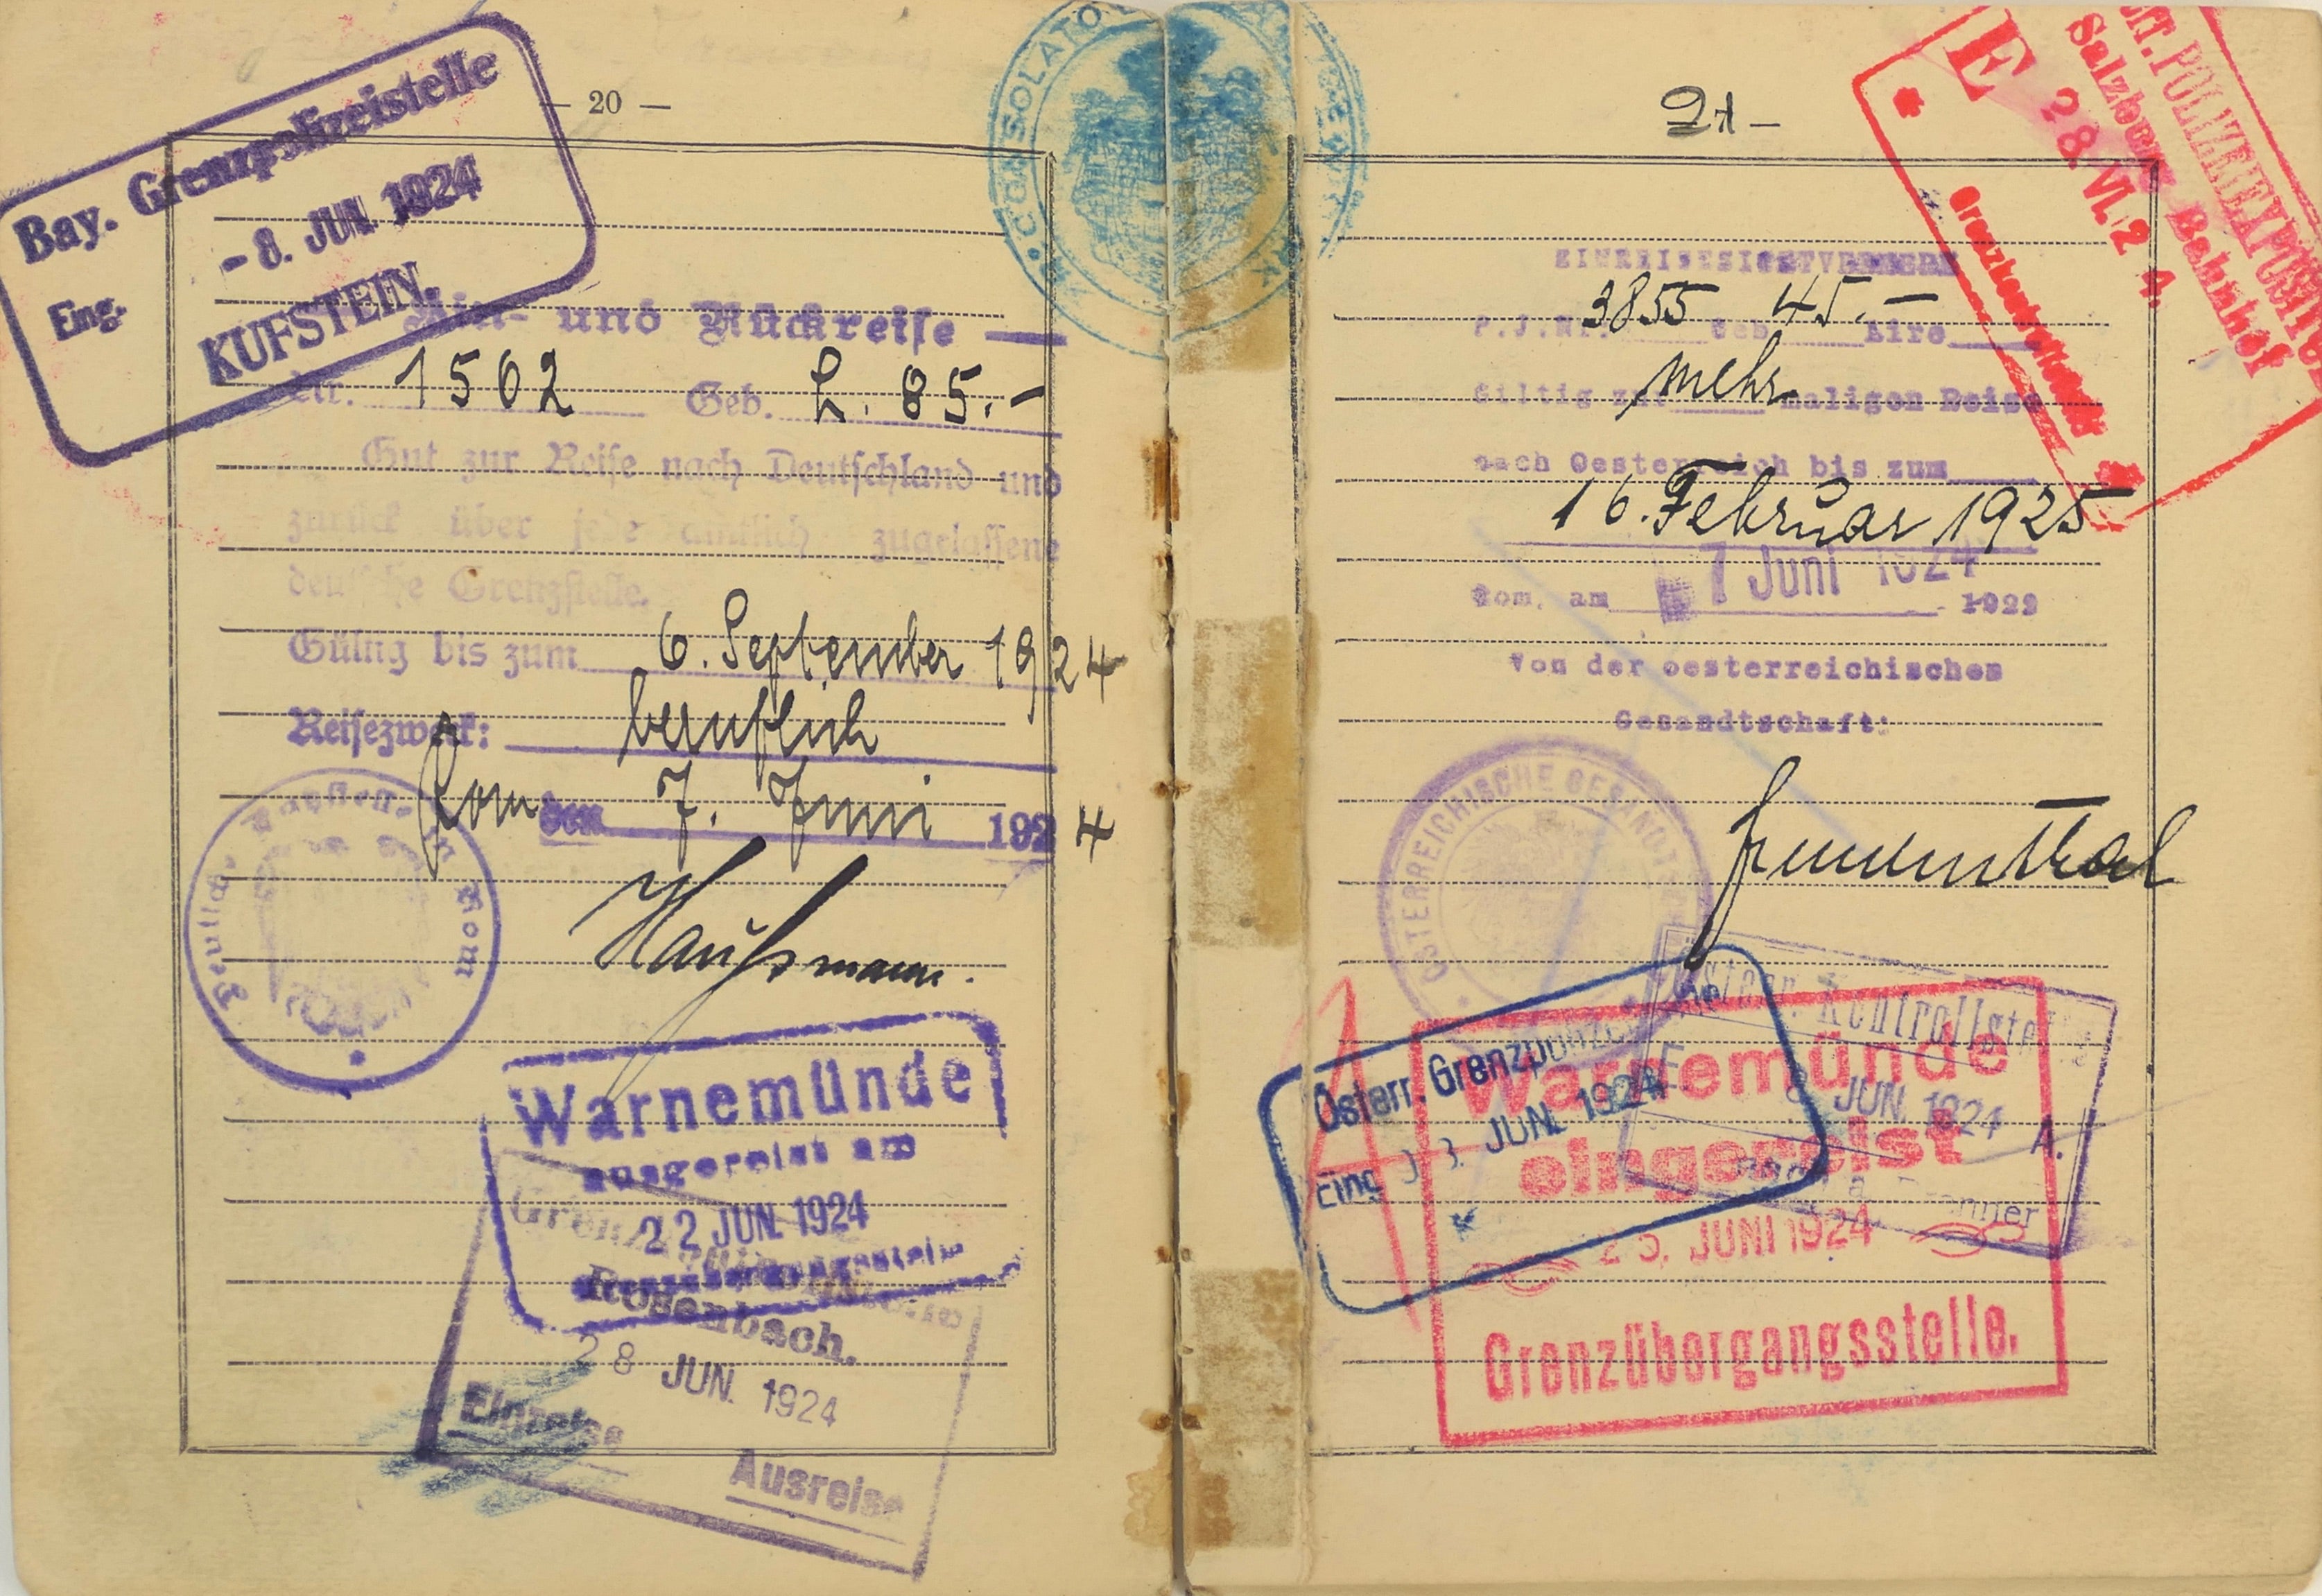 — 20 —
Bay. Grenzpolizeistelle
- 8. JUN. 1924
Eing.
KUFSTEIN.
Hin- und Rückreise —
Nr. 1502 Geb. L. 85.-
Gut zur Reise nach Deutschland und
zurück über jede amtlich zugelassene
deutsche Grenzstelle.
Gültig bis zum 6. September 1924
Reisezweck: beruflich
Rom den 7. Juni 1924
Rom
Haußmann.
Warnemünde
ausgereist am
22 JUN. 1924
Rosenbach.
28 JUN. 1924
Einreise
Ausreise
CONSOLATO
21 -
POLIZEIEXPOSITUR
Salzburg Bahnhof
E 28. VI. 24.
Grenzkontrolle
EINREISESICHTVERMERK
P.J.Nr. 3855 Geb. 45.- Lire
Giltig zur mehrmaligen Reise
nach Oesterreich bis zum
16. Februar 1925
Rom, am 7 Juni 1924 1922
Von der oesterreichischen
Gesandtschaft:
ÖSTERREICHISCHE GESANDT
Österr. Kontrollstelle
8 JUN. 1924
A.
Österr. Grenzpolizei
Eing 3. JUN. 1924
Warnemünde
eingereist
25. JUNI 1924
Grenzübergangsstelle.